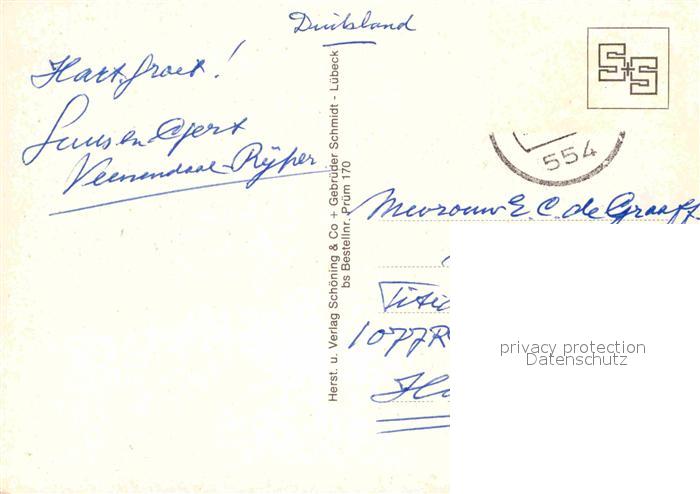 Duitsland
Hart. groet!
Guus en Gert
Veenendaal-Rijper
Herst. u. Verlag Schöning & Co + Gebrüder Schmidt - Lübeck
bs Bestellnr. Prüm 170
S+S
554
Mevrouw E. C. de Graaff
1077R
privacy protection
Datenschutz